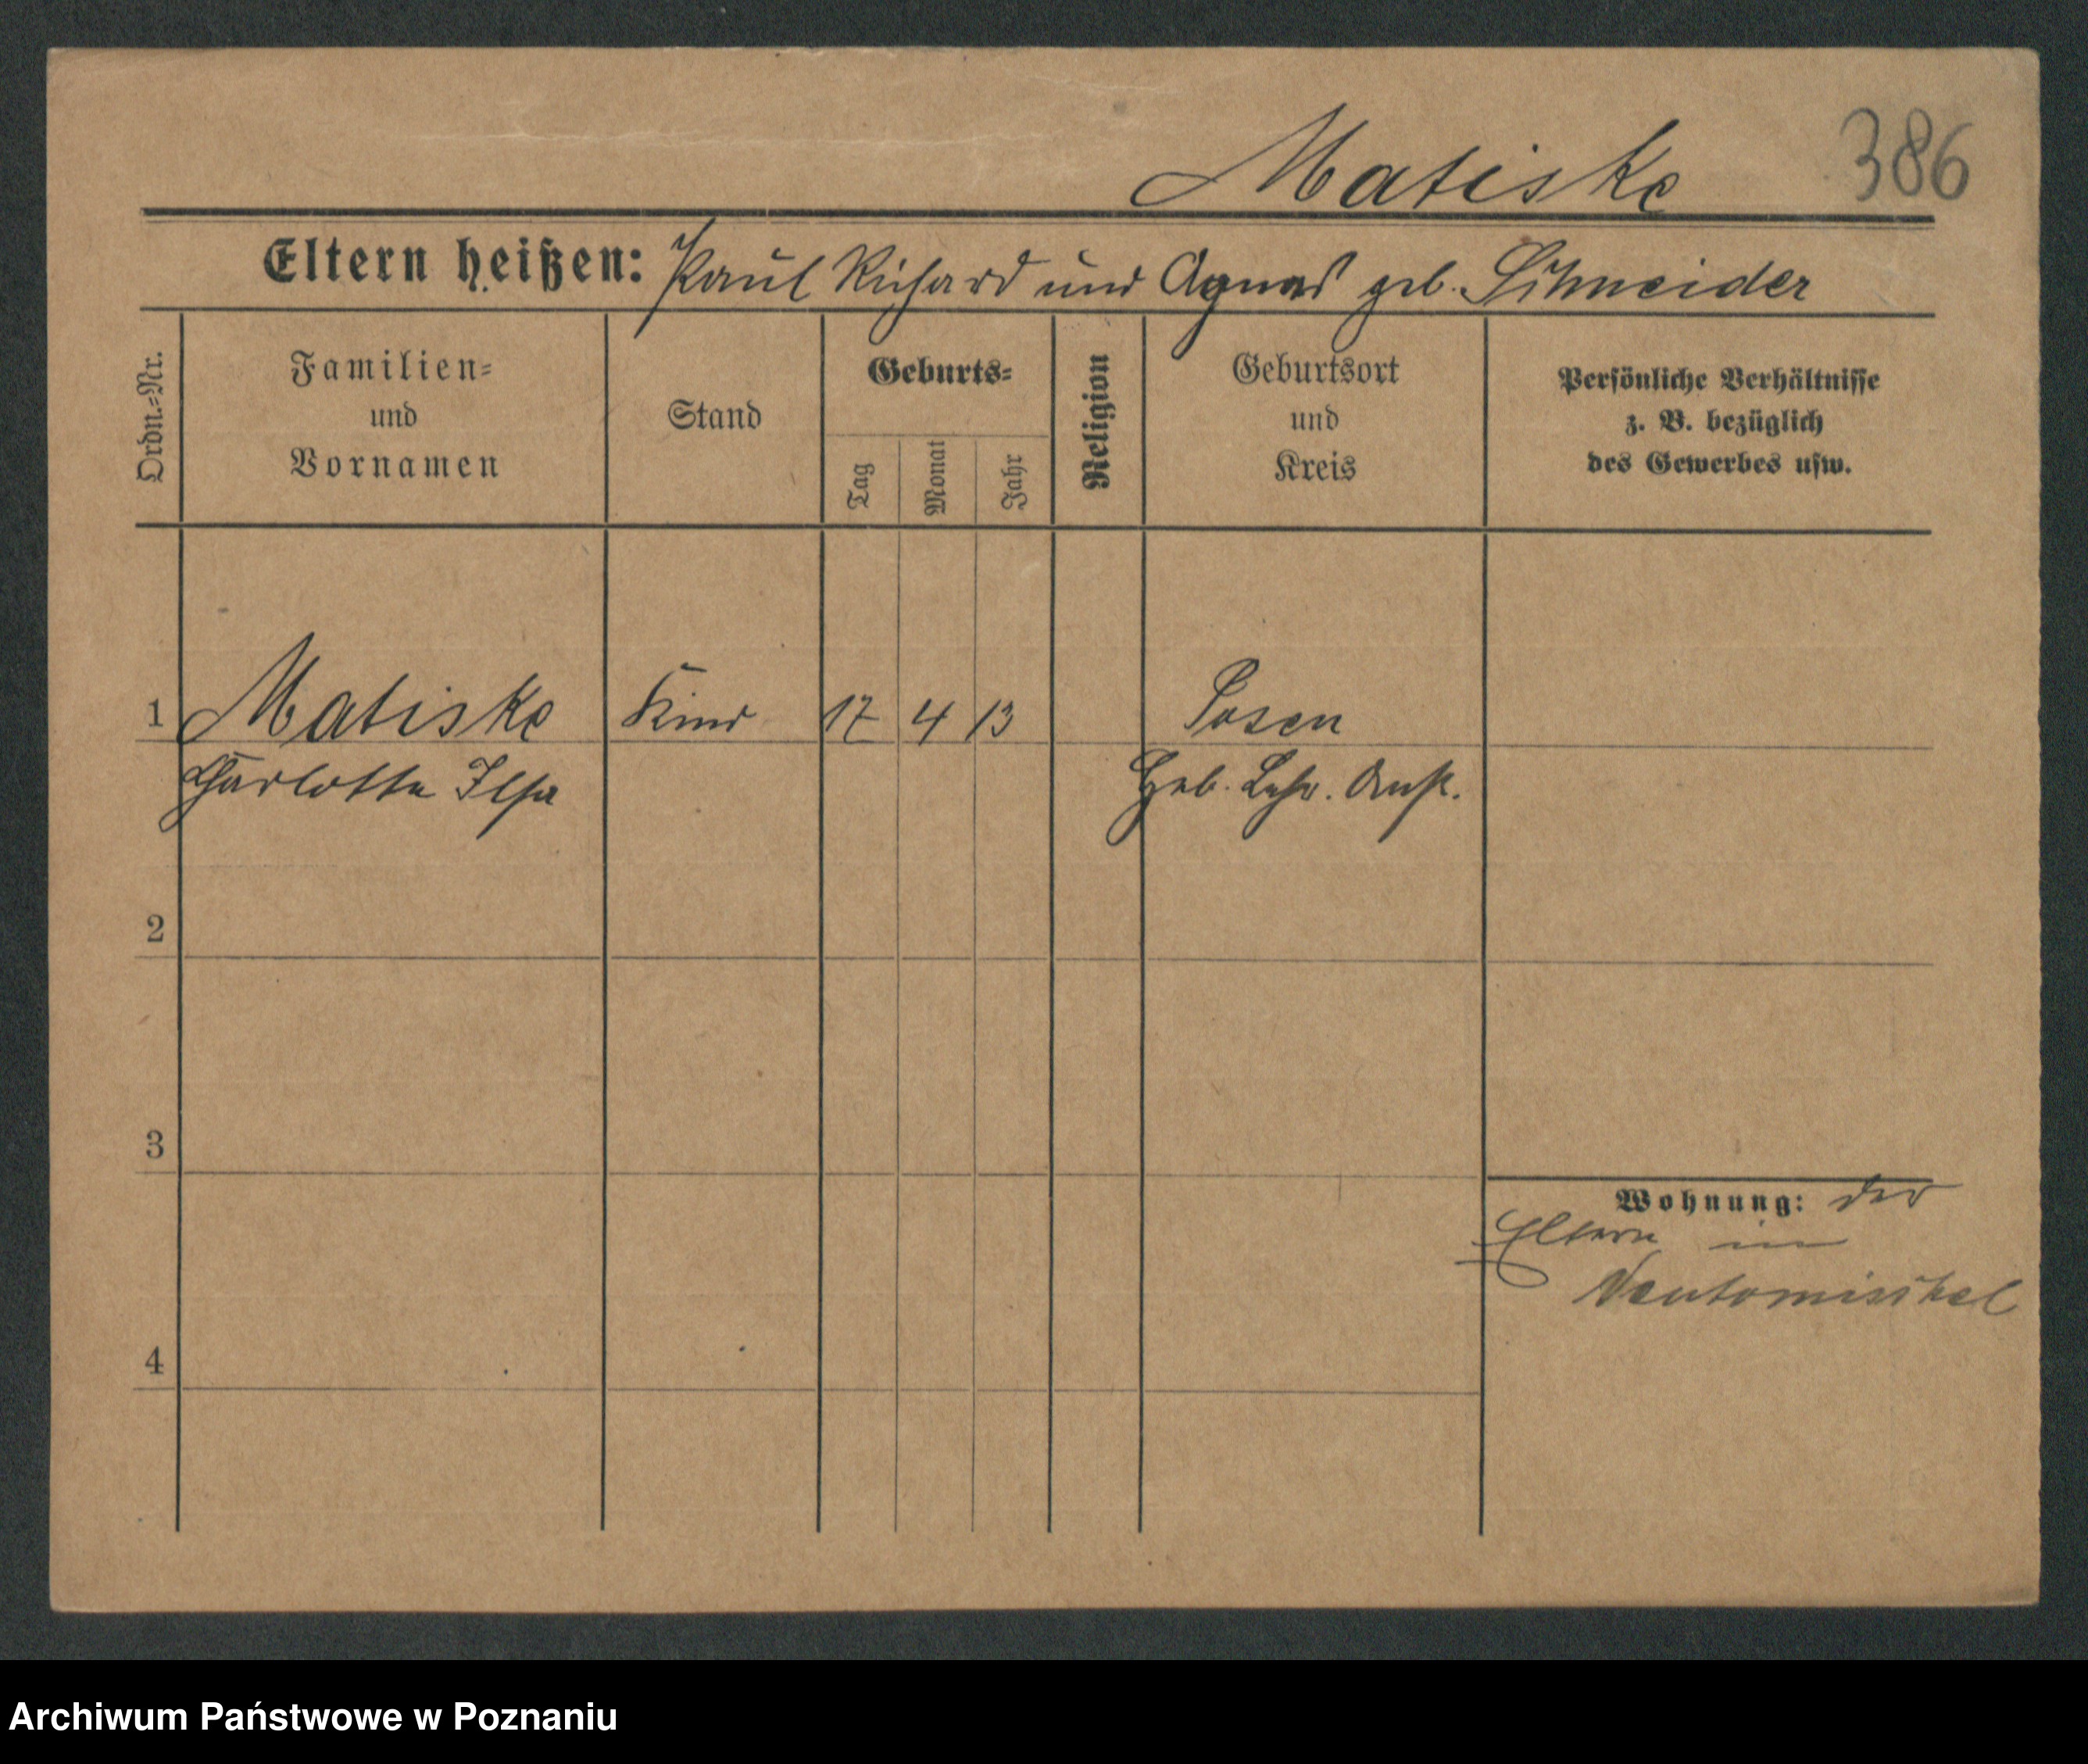 Matiske 386
Eltern heißen: Paul Richard und Agnes geb. Schneider
Ordn.=Nr.
Familien=
und
Vornamen
Stand
Geburts=
Tag
Monat
Jahr
Religion
Geburtsort
und
Kreis
Persönliche Verhältnisse
z. B. bezüglich
des Gewerbes usw.
1 Matiske Kind 17 4 13 Posen
Charlotte Ilse Heb. Lehr. Anst.
2
3
Wohnung: der
Eltern in
Neutomischel
4
Archiwum Państwowe w Poznaniu